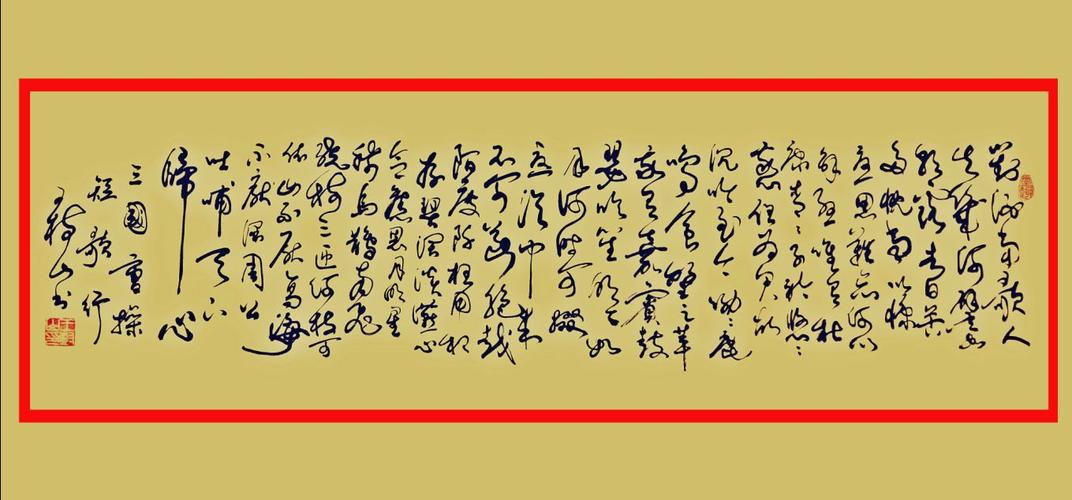 對酒當歌人
生幾何譬如
朝露去日苦
多慨當以慷
憂思難忘何以
解憂唯有杜
康青青子衿悠悠
我心但为君故
沉吟至今呦呦鹿
鳴食野之苹
我有嘉賓鼓
瑟吹笙明明如
月何時可掇
憂從中來
不可斷絕越
陌度阡枉用相
存契闊談讌心
念舊恩月明星
稀烏鵲南飛
繞樹三匝何枝可
依山不厭高海
不厭深周公
吐哺天下
歸心
三國曹操
短歌行
山书